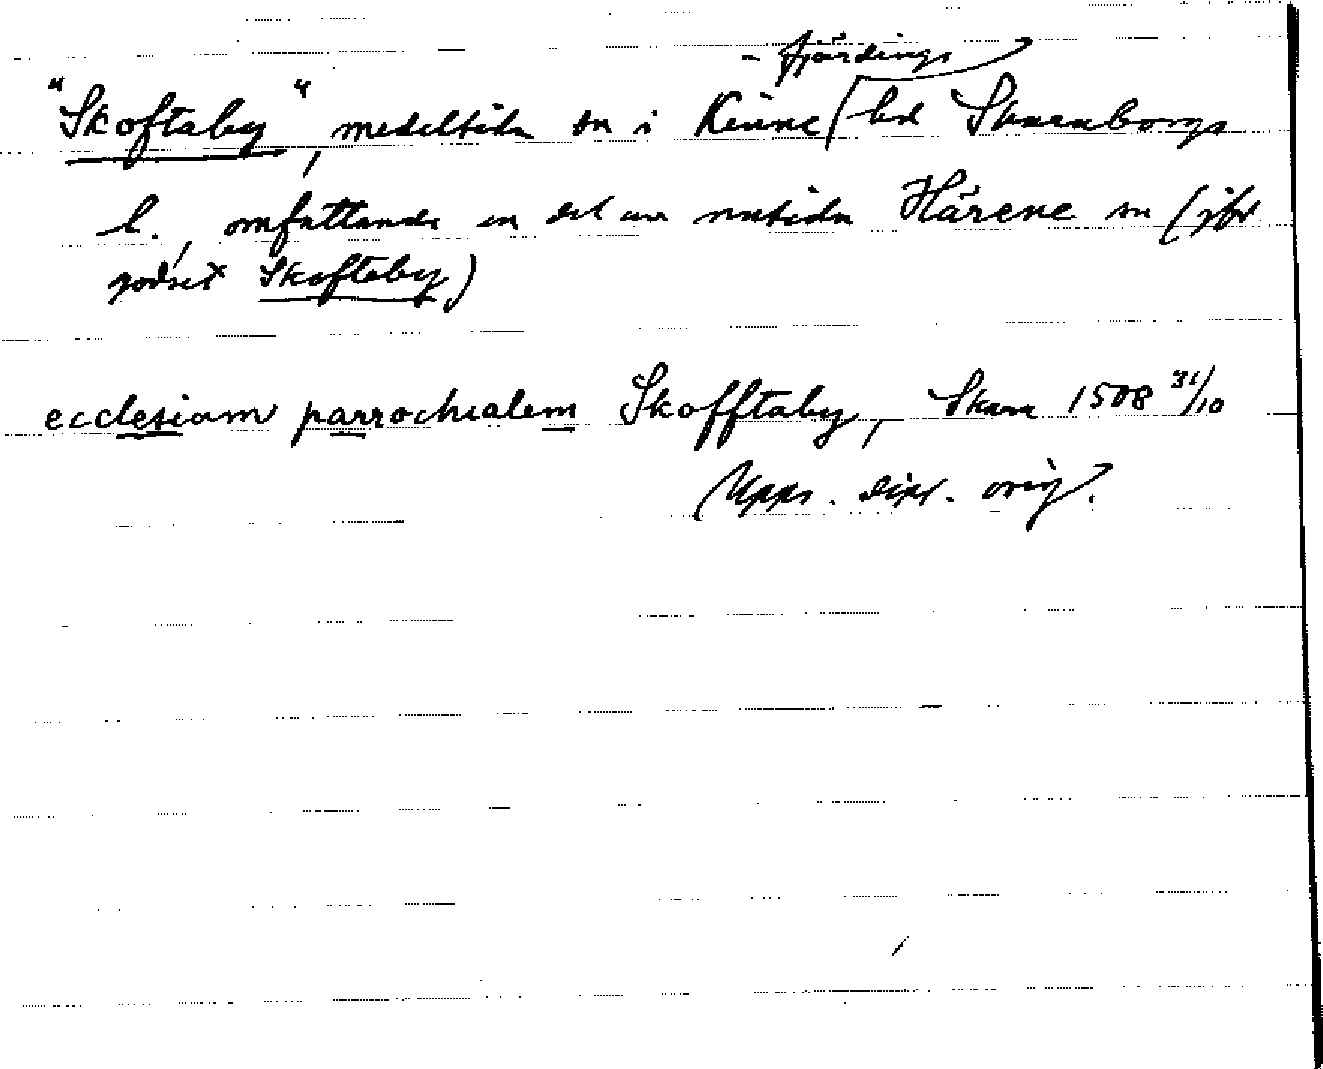 - fjärdings
"Skoftaby", medeltida sn i Kinne hd Skaraborgs
l., omfattande en del av nutida Härene sn (jfr
godset Skoftaby)
ecclesiam parrochialem Skofftaby, Skara 1508 31/10
Upps. dipl. orig.